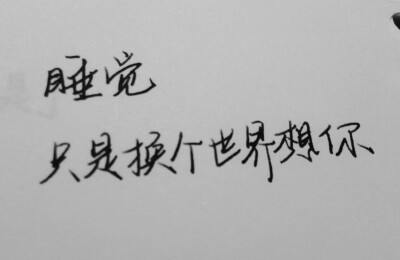 睡觉
只是换个世界想你